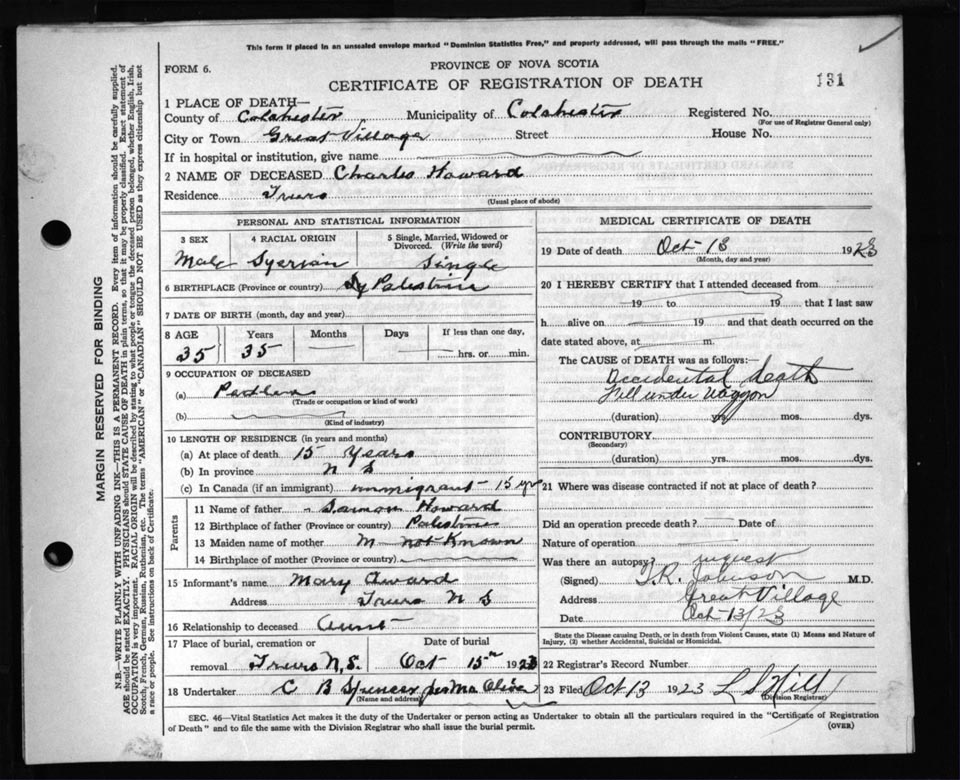 This form if placed in an unsealed envelope marked "Dominion Statistics Free," and property addressed, will pass through the mails "FREE."
PROVINCE OF NOVA SCOTIA
FORM 6.
CERTIFICATE OF REGISTRATION OF DEATH
131
1 PLACE OF DEATH—
County of Colchester Municipality of Colchester Registered No.
(For use of Registrar General only)
City or Town Great Village Street House No.
If in hospital or institution, give name
2 NAME OF DECEASED Charles Howard
Residence Truro
(Usual place of abode)
PERSONAL AND STATISTICAL INFORMATION
3 SEX 4 RACIAL ORIGIN 5 Single, Married, Widowed or Divorced. (Write the word)
Male Syerian Single
6 BIRTHPLACE (Province or country) Sy Palestine
7 DATE OF BIRTH (month, day and year)
8 AGE Years Months Days If less than one day,
35 35 — — hrs. or min.
9 OCCUPATION OF DECEASED
(a) Pedler
(Trade or occupation or kind of work)
(b)
(Kind of industry)
10 LENGTH OF RESIDENCE (in years and months)
(a) At place of death 15 years
(b) In province N S
(c) In Canada (if an immigrant) immigrant - 15 yrs
Parents
11 Name of father - Howard
12 Birthplace of father (Province or country) Palestine
13 Maiden name of mother M - not Known
14 Birthplace of mother (Province or country)
15 Informant's name Mary Award
Address Truro N S
16 Relationship to deceased Aunt
17 Place of burial, cremation or Date of burial
removal Truro N.S. Oct 15th 1923
18 Undertaker C B Spencer
(Name and address)
MEDICAL CERTIFICATE OF DEATH
19 Date of death Oct 13 1923
(Month, day and year)
20 I HEREBY CERTIFY that I attended deceased from
19 to 19 that I last saw
h alive on 19 and that death occurred on the
date stated above, at m.
The CAUSE of DEATH was as follows:—
Accidental death
Fell under waggon
(duration) yrs. mos. dys.
CONTRIBUTORY.
(Secondary)
(duration) yrs. mos. dys.
21 Where was disease contracted if not at place of death?
Did an operation precede death? Date of
Nature of operation
Was there an autopsy? inquest
(Signed) T.R. Johnson M.D.
Address Great Village
Date Oct 13/23
State the Disease causing Death, or in death from Violent Causes, state (1) Means and Nature of Injury, (2) whether Accidental, Suicidal or Homicidal.
22 Registrar's Record Number
23 Filed Oct 13 1923 L S Hill
(Division Registrar)
SEC. 46—Vital Statistics Act makes it the duty of the Undertaker or person acting as Undertaker to obtain all the particulars required in the "Certificate of Registration
of Death" and to file the same with the Division Registrar who shall issue the burial permit. (OVER)
MARGIN RESERVED FOR BINDING
N.B.—WRITE PLAINLY WITH UNFADING INK—THIS IS A PERMANENT RECORD. Every item of information should be carefully supplied.
AGE should be stated EXACTLY. PHYSICIANS should STATE CAUSE OF DEATH in plain terms, so that it may be properly classified. Exact statement of
OCCUPATION is very important. RACIAL ORIGIN will be described by stating to what people or tongue the deceased person belonged, whether English, Irish,
Scotch, French, German, Russian, Ruthenian, etc. The terms "AMERICAN" or "CANADIAN" SHOULD NOT BE USED as they express citizenship but not
a race or people. See instructions on back of Certificate.